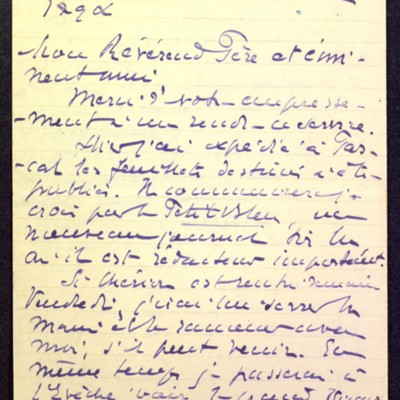 Mon Révérend Père et émi-
nent ami
Merci d' votre empresse-
-ment à me rendre service.
Hier j'ai expédié à Pas-
cal les feuillets destinés à être
publiés. Il commencera j-
crois par le Petit Bleu, un
nouveau journal
où il est rédacteur important.
Si Chérien est rentré
Vendredi, j'irai lui serrer la
main et le ramener avec
moi, s'il peut venir. En
même temps j- passerai à
l'Evêché voir